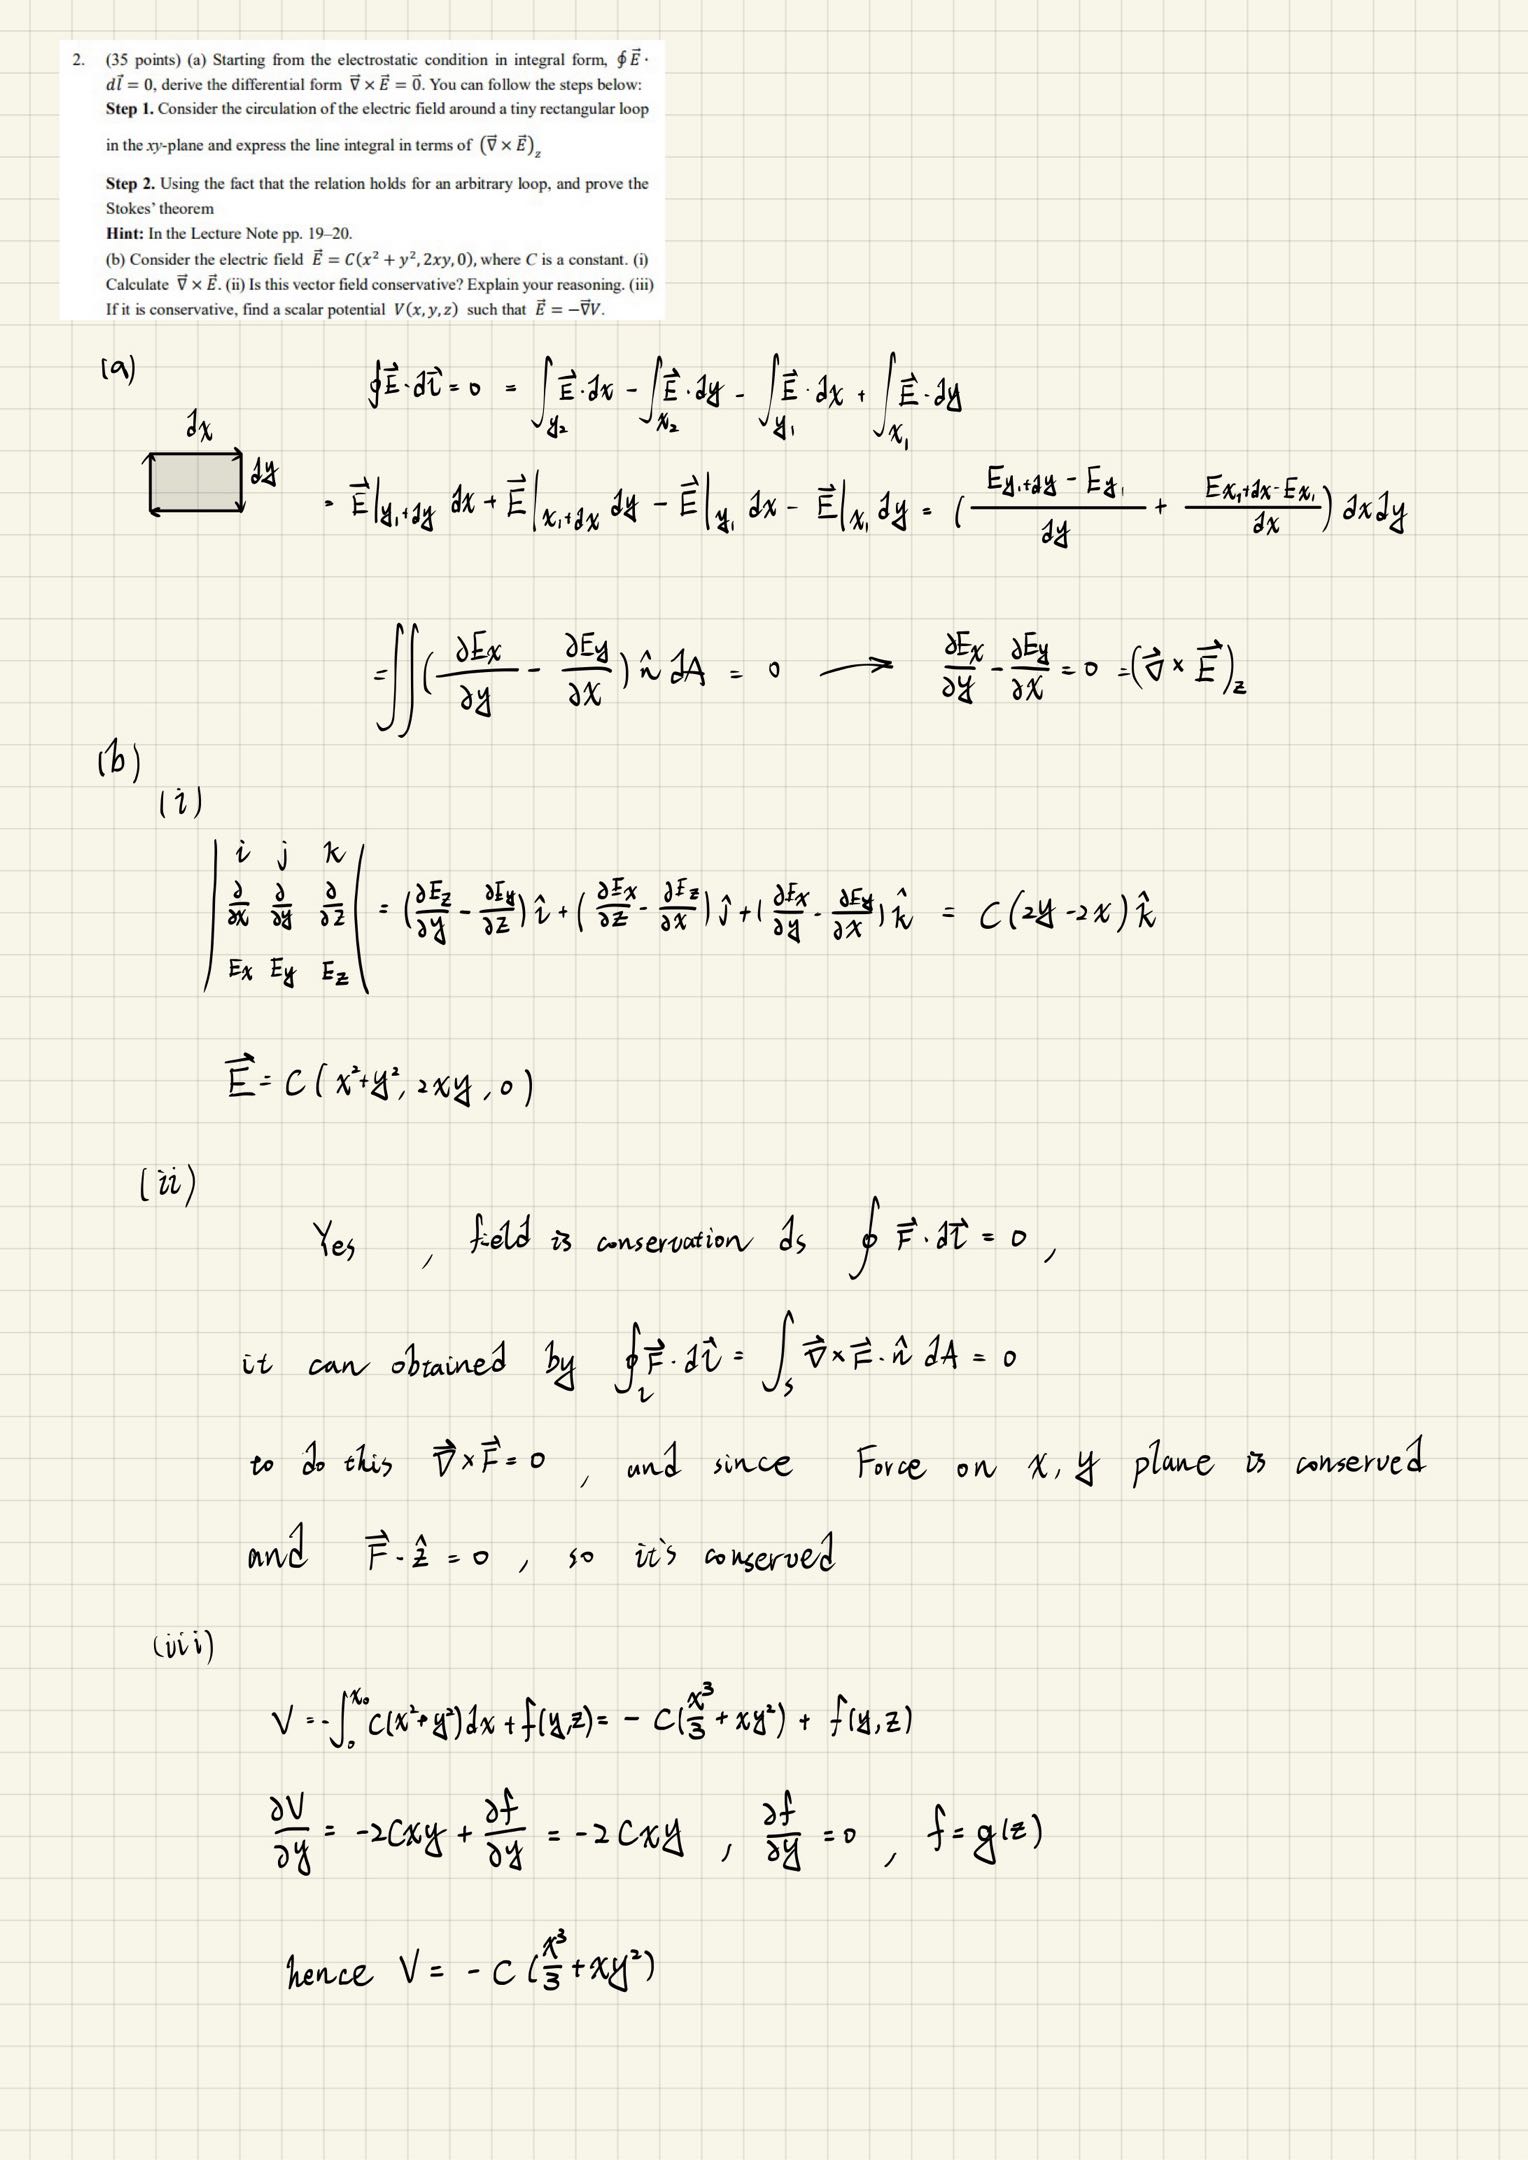 2. (35 points) (a) Starting from the electrostatic condition in integral form, ∮E⃗ ·
dl⃗ = 0, derive the differential form ∇⃗ × E⃗ = 0⃗. You can follow the steps below:
Step 1. Consider the circulation of the electric field around a tiny rectangular loop
in the xy-plane and express the line integral in terms of (∇⃗ × E⃗)_z
Step 2. Using the fact that the relation holds for an arbitrary loop, and prove the
Stokes' theorem
Hint: In the Lecture Note pp. 19–20.
(b) Consider the electric field E⃗ = C(x² + y², 2xy, 0), where C is a constant. (i)
Calculate ∇⃗ × E⃗. (ii) Is this vector field conservative? Explain your reasoning. (iii)
If it is conservative, find a scalar potential V(x, y, z) such that E⃗ = −∇⃗V.
(a)
∮E⃗·dl⃗ = 0 = ∫_{y₂} E⃗·dx - ∫_{x₂} E⃗·dy - ∫_{y₁} E⃗·dx + ∫_{x₁} E⃗·dy
dx
dy
= E⃗|_{y₁+dy} dx + E⃗|_{x₁+dx} dy - E⃗|_{y₁} dx - E⃗|_{x₁} dy = ( (E_{y₁+dy} - E_{y₁})/dy + (E_{x₁+dx} - E_{x₁})/dx ) dxdy
= ∬ (∂Ex/∂y - ∂Ey/∂x) n̂ dA = 0 → ∂Ex/∂y - ∂Ey/∂x = 0 = (∇⃗ × E⃗)_z
(b)
(i)
| i j k |
| ∂/∂x ∂/∂y ∂/∂z | = (∂Ez/∂y - ∂Ey/∂z) î + (∂Ex/∂z - ∂Ez/∂x) ĵ + (∂Ex/∂y - ∂Ey/∂x) k̂ = C(2y - 2x) k̂
| Ex Ey Ez |
E⃗ = C(x²+y², 2xy, 0)
(ii)
Yes , field is conservation ds ∮ F⃗·dl⃗ = 0 ,
it can obtained by ∮_l F⃗·dl⃗ = ∫_s ∇⃗×F⃗·n̂ dA = 0
to do this ∇⃗×F⃗ = 0 , and since Force on x, y plane is conserved
and F⃗·ẑ = 0 , so it's conserved
(iii)
V = -∫₀^{x₀} C(x²+y²)dx + f(y,z) = - C(x³/3 + xy²) + f(y,z)
∂V/∂y = -2Cxy + ∂f/∂y = -2Cxy , ∂f/∂y = 0 , f = g(z)
hence V = - C (x³/3 + xy²)